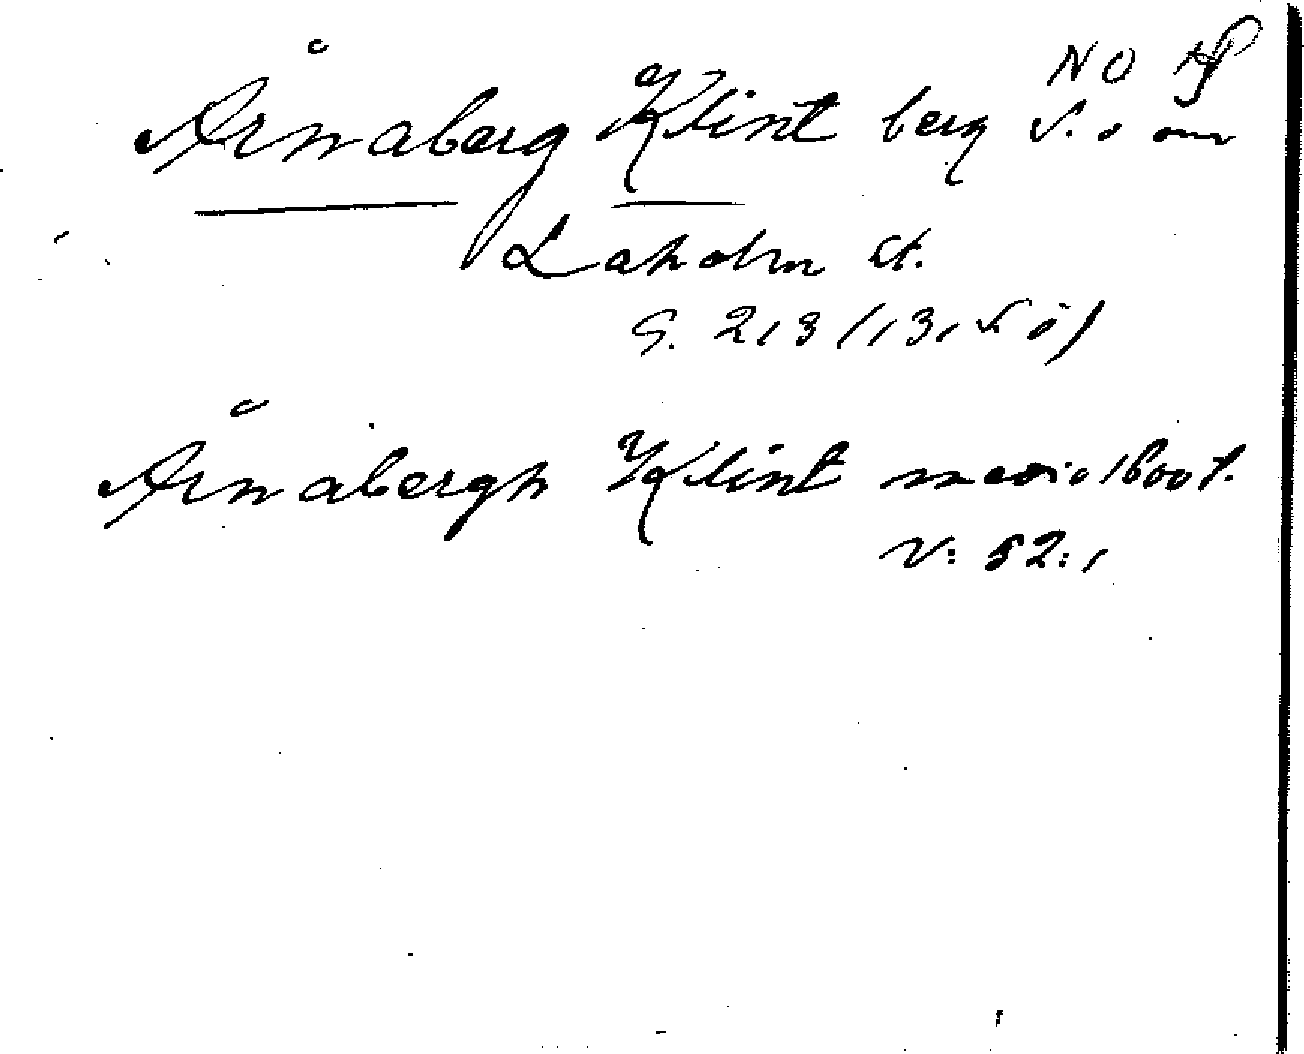 NO
Årnaberg Klint berg S. o om
Laholm st.
S. 213 (13, S ö)
Årnabergh Klint medio 1600 t.
V: 52:1